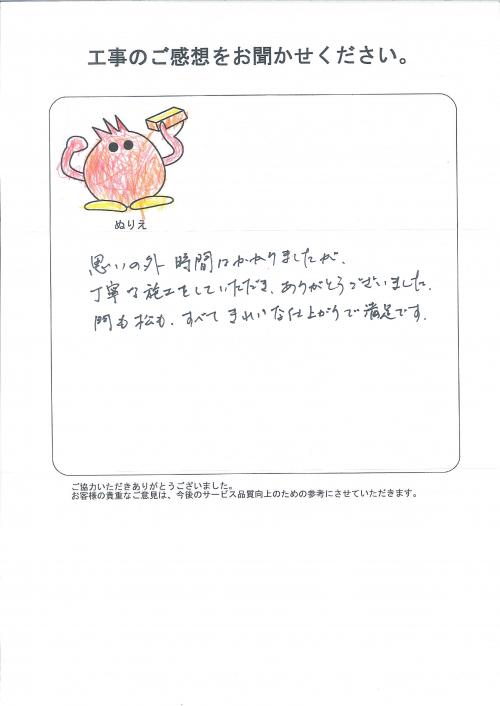 工事のご感想をお聞かせください。
ぬりえ
思いの外 時間はかかりましたが、
丁寧な施工をしていただき、ありがとうございました。
門も松も、すべてきれいな仕上がりで満足です。
ご協力いただきありがとうございました。
お客様の貴重なご意見は、今後のサービス品質向上のための参考にさせていただきます。